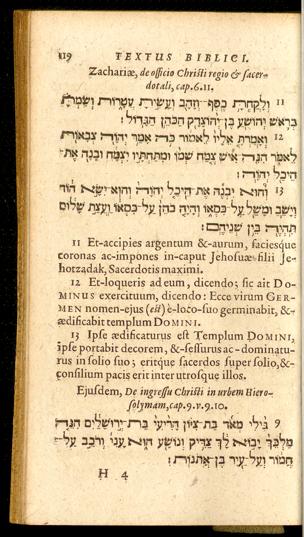 119 TEXTUS BIBLICI.
Zachariæ, de officio Christi regio & sacer-
dotali, cap. 6. 11.
11 וְלָקַחְתָּ כֶסֶף־וְזָהָב וְעָשִׂיתָ עֲטָרוֹת וְשַׂמְתָּ
בְּרֹאשׁ יְהוֹשֻׁעַ בֶּן־יְהוֹצָדָק הַכֹּהֵן הַגָּדוֹל׃
12 וְאָמַרְתָּ אֵלָיו לֵאמֹר כֹּה אָמַר יְהוָה צְבָאוֹת
לֵאמֹר הִנֵּה אִישׁ צֶמַח שְׁמוֹ וּמִתַּחְתָּיו יִצְמָח וּבָנָה אֶת־
הֵיכַל יְהוָה׃
13 וְהוּא יִבְנֶה אֶת־הֵיכַל יְהוָה וְהוּא־יִשָּׂא הוֹד
וְיָשַׁב וּמָשַׁל עַל־כִּסְאוֹ וְהָיָה כֹהֵן עַל־כִּסְאוֹ וַעֲצַת שָׁלוֹם
תִּהְיֶה בֵּין שְׁנֵיהֶם׃
11 Et-accipies argentum &-aurum, faciesque
coronas ac-impones in-caput Jehosuæ filii Je-
hotzadak, Sacerdotis maximi.
12 Et-loqueris ad eum, dicendo; sic ait Do-
MINUS exercituum, dicendo: Ecce virum GER-
MEN nomen-ejus (est) è-loco-suo germinabit, &-
ædificabit templum DOMINI.
13 Ipse ædificaturus est Templum DOMINI,
ipse portabit decorem, &-sessurus ac-dominatu-
rus in solio suo; eritque sacerdos super solio, &-
consilium pacis erit inter utrosque illos.
Ejusdem, De ingressu Christi in urbem Hiero-
solymam, cap. 9. v. 9. 10.
9 גִּילִי מְאֹד בַּת־צִיּוֹן הָרִיעִי בַּת־יְרוּשָׁלִַים הִנֵּה
מַלְכֵּךְ יָבוֹא לָךְ צַדִּיק וְנוֹשָׁע הוּא עָנִי וְרֹכֵב עַל־
חֲמוֹר וְעַל־עַיִר בֶּן־אֲתֹנוֹת׃
H 4